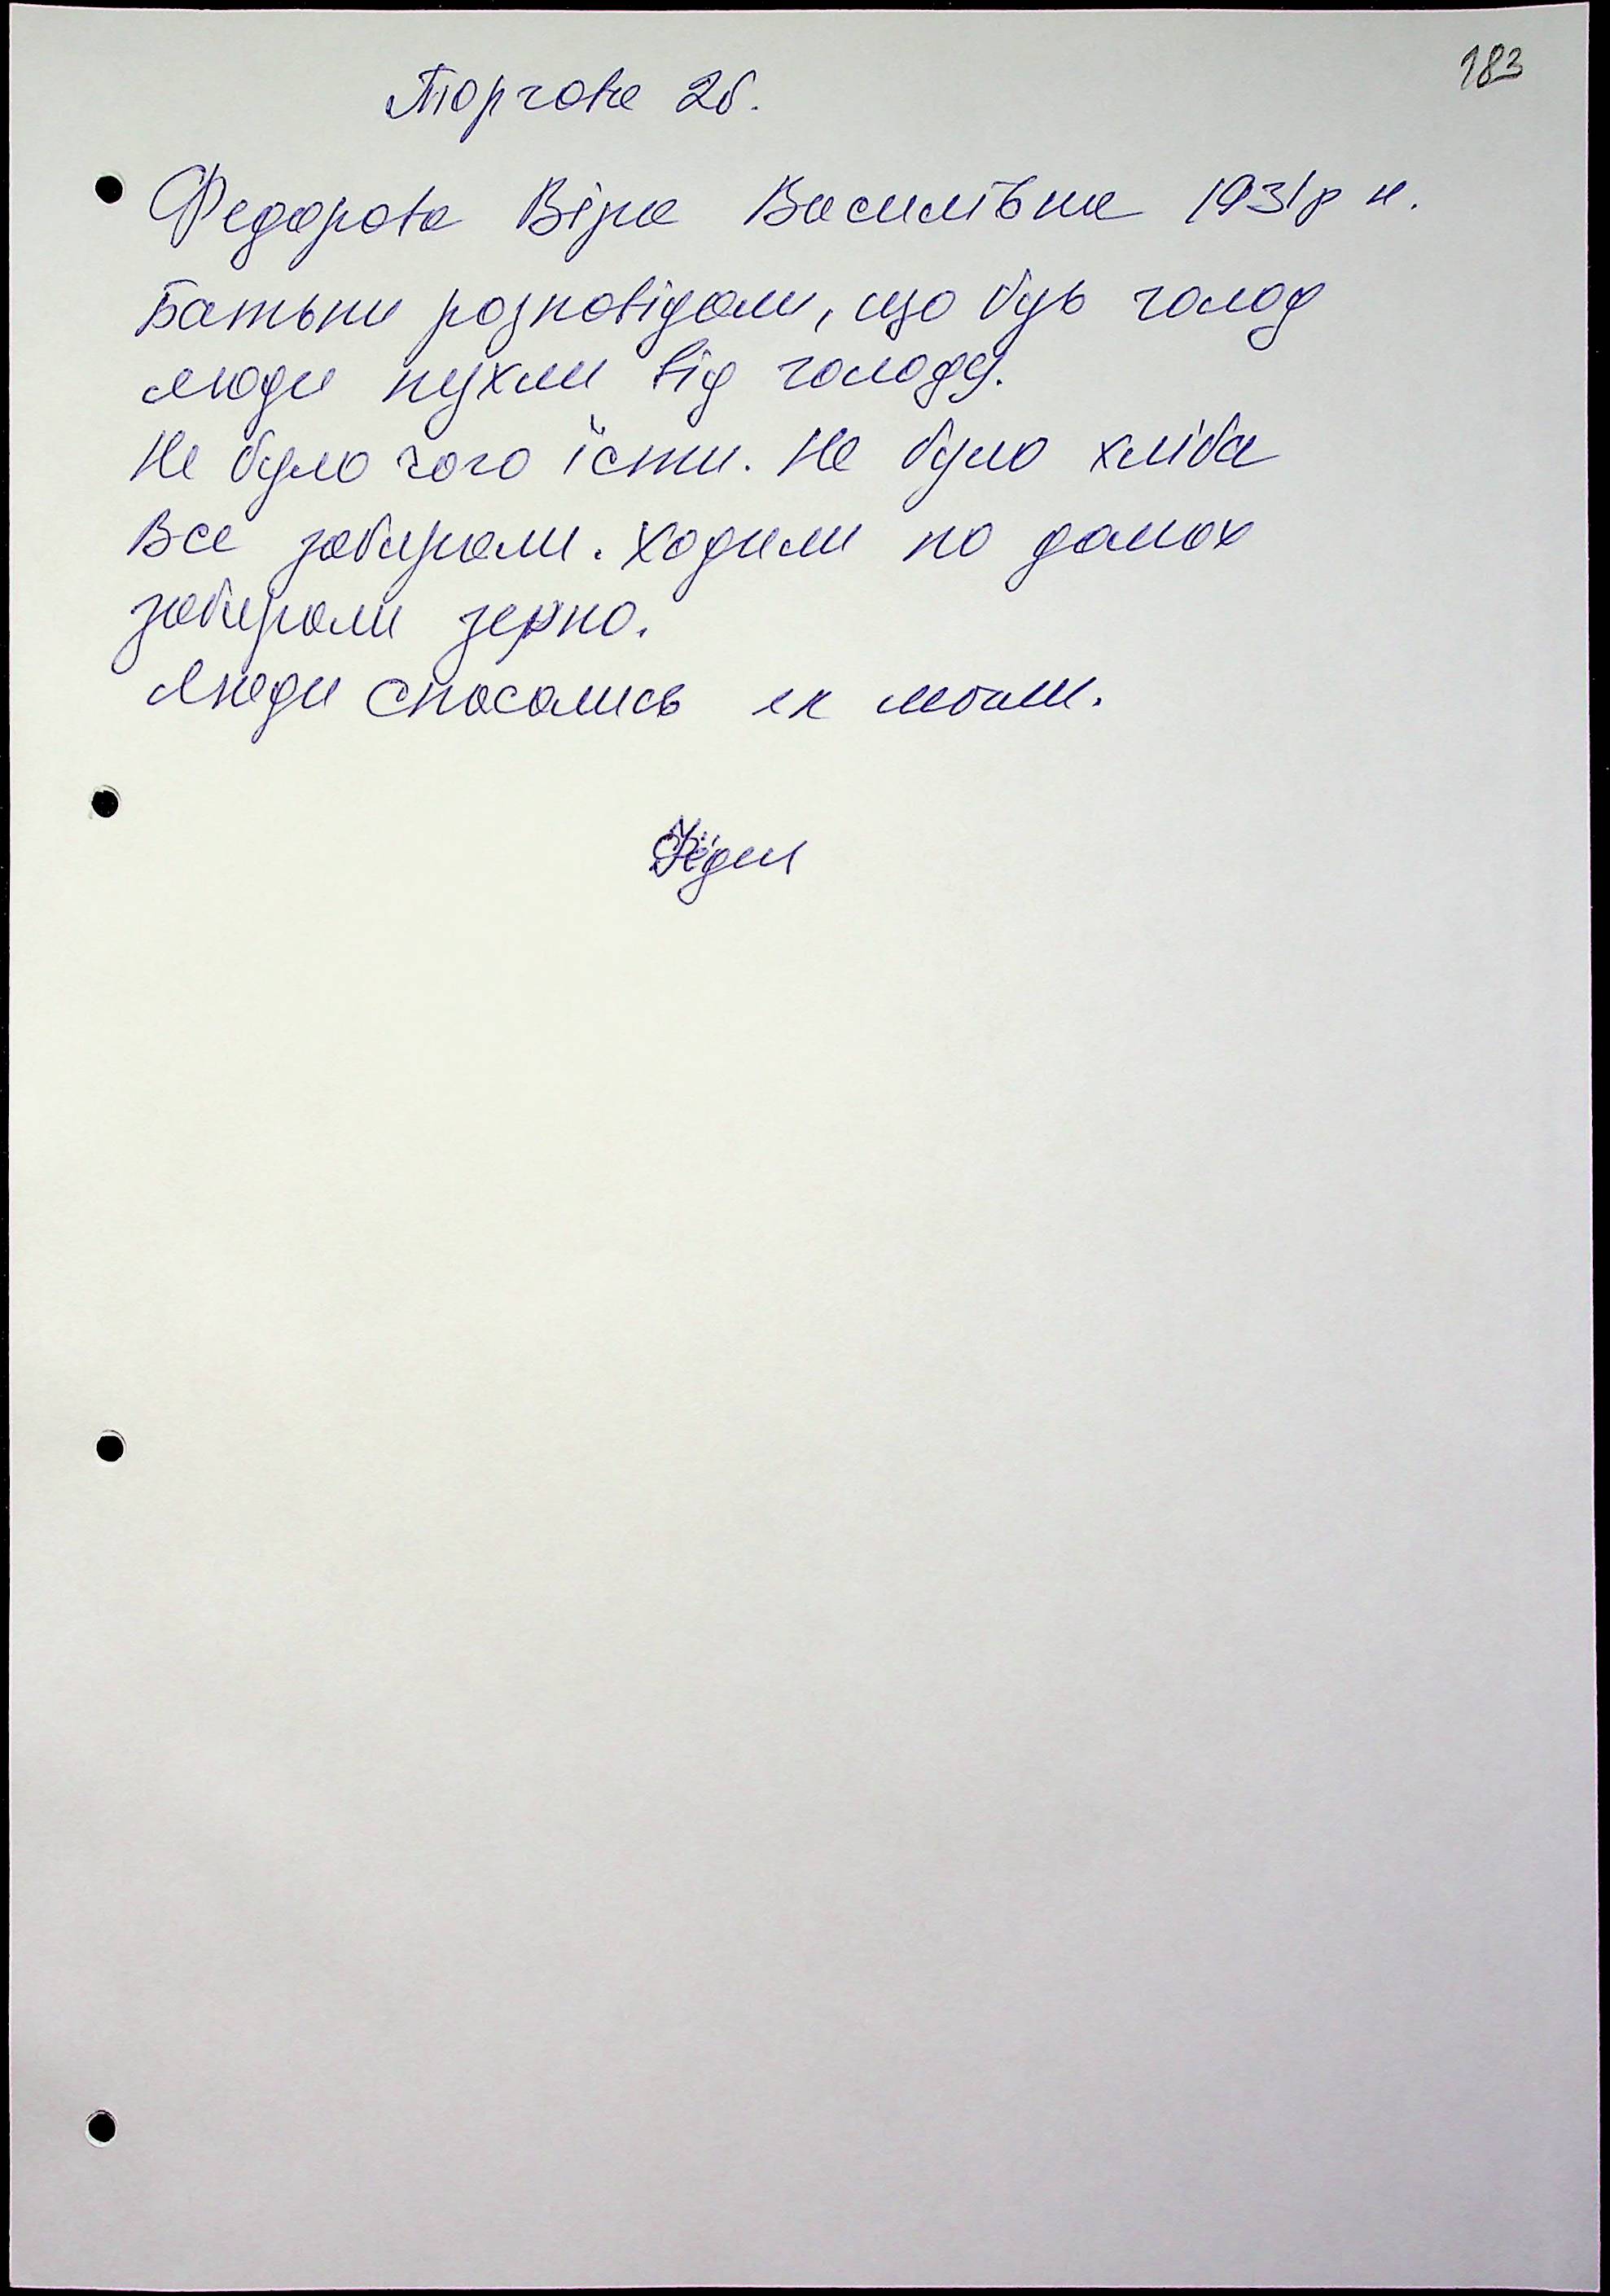 183
Торгова 2б.
Федорова Віра Василівна 1931р н.
Батьки розповідали, що був голод
люди пухли від голоду.
Не було чого їсти. Не було хліба
Все забирали. Ходили по домах
забирали зерно.
Люди спасались як могли.